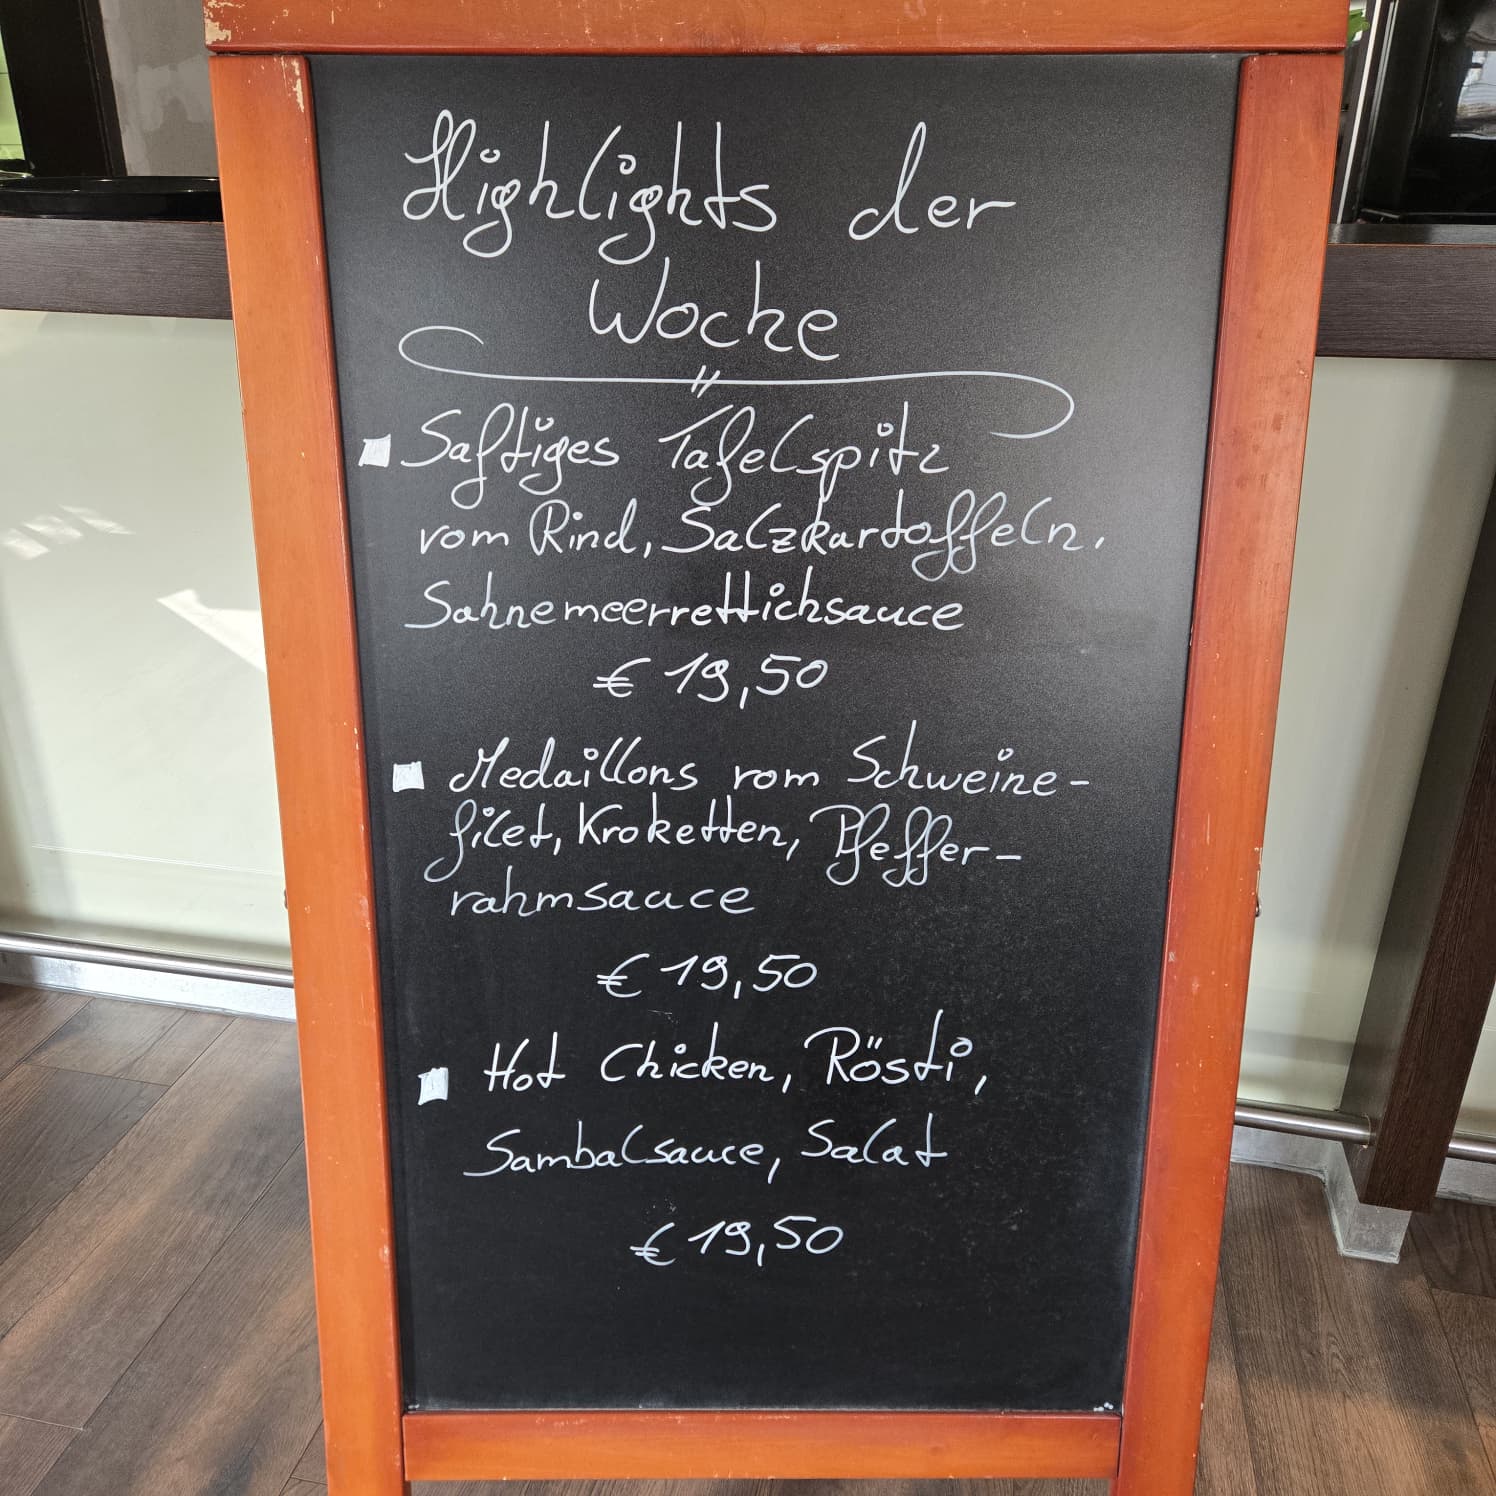 Highlights der
Woche
Saftiges Tafelspitz
vom Rind, Salzkartoffeln,
Sahnemeerrettichsauce
€ 19,50
Medaillons vom Schweine-
filet, Kroketten, Pfeffer-
rahmsauce
€ 19,50
Hot Chicken, Rösti,
Sambalsauce, Salat
€ 19,50